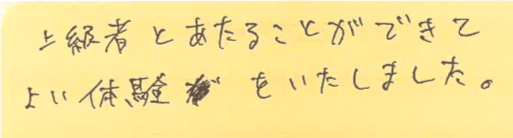 上級者とあたることができて
よい体験をいたしました。